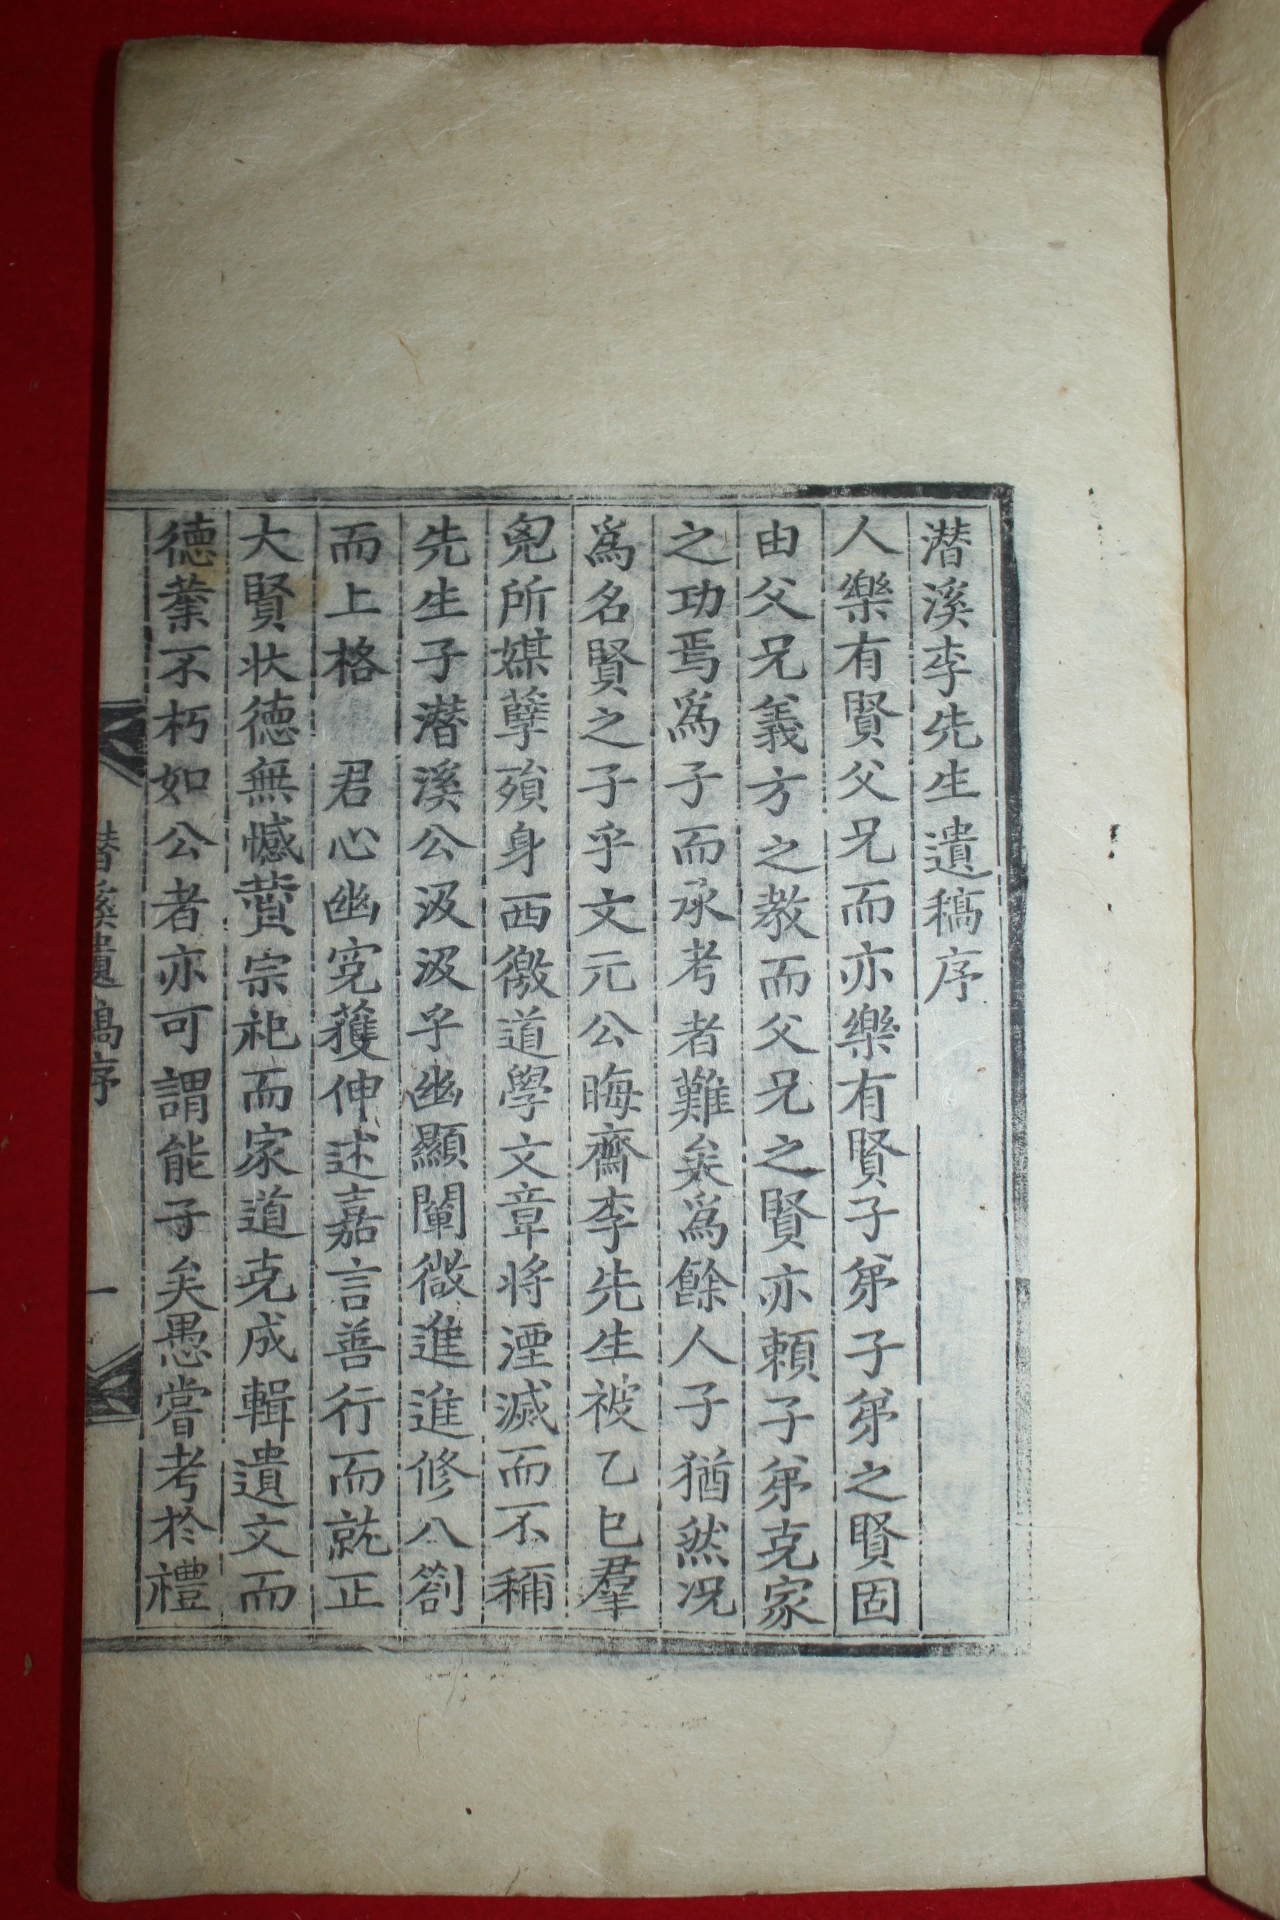 潛溪李先生遺稿序
人樂有賢父兄而亦樂有賢子弟子弟之賢固
由父兄義方之敎而父兄之賢亦賴子弟克家
之功焉爲子而承考者難矣爲餘人子猶然况
爲名賢之子乎文元公晦齋李先生被乙巳羣
兇所媒孼殞身西徼道學文章將湮滅而不稱
先生子潛溪公汲汲乎幽顯闡微進進修八劄
而上格 君心幽寃獲伸述嘉言善行而就正
大賢狀德無憾贊宗祀而家道克成輯遺文而
德業不朽如公者亦可謂能子矣愚嘗考於禮
潛溪遺稿序 一